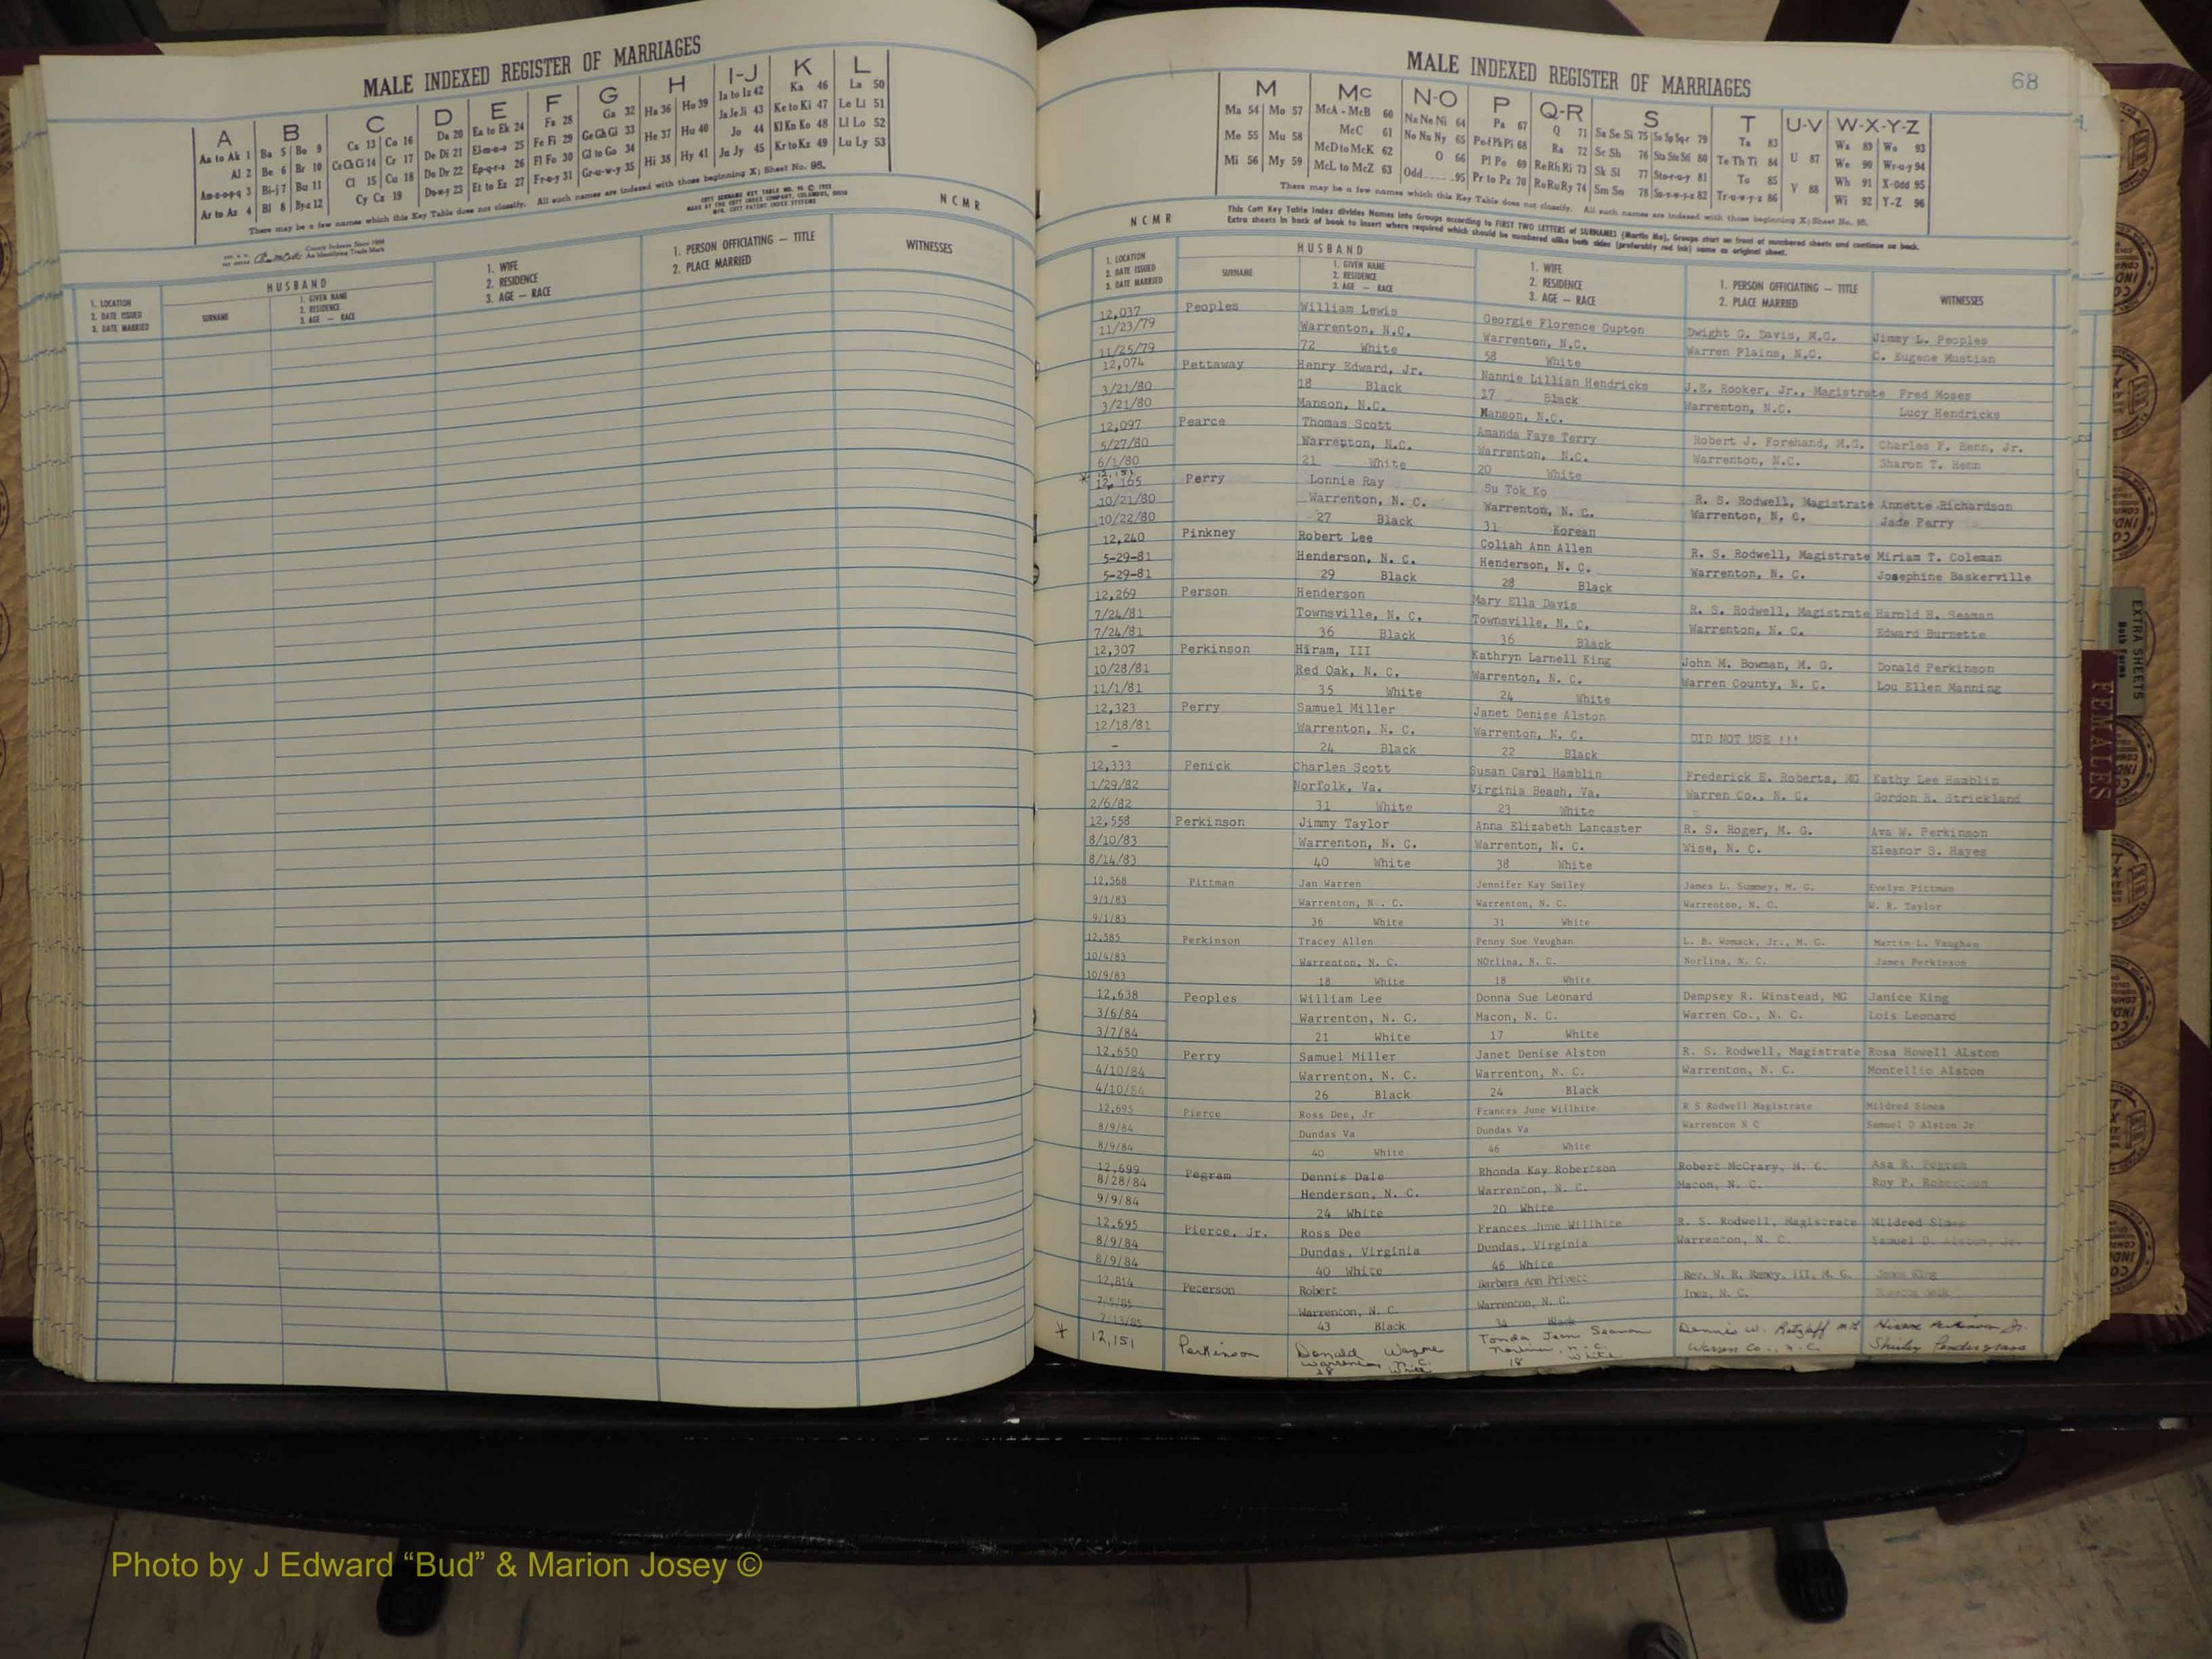 MALE INDEXED REGISTER OF MARRIAGES
A B C D E F G H I-J K L
Aa to Ak 1 Ba 5 Bo 9 Ca 13 Co 16 Da 20 Ea to Ek 24 Fa 28 Ga 32 Ha 36 Ho 39 Ia to Iz 42 Ka 46 La 50
Al 2 Be 6 Br 10 Ce Ch Ci 14 Cr 17 De Di 21 El-m-n-o 25 Fe Fi 29 Ge Gh Gi 33 He 37 Hu 40 Ja Je Ji 43 Ke to Ki 47 Le Li 51
Am-n-o-p-q 3 Bi-j 7 Bu 11 Cl 15 Cu 18 Do Dr 22 Ep-q-r-s 26 Fl Fo 30 Gl to Go 34 Hi 38 Hy 41 Jo 44 Kl Kn Ko 48 Ll Lo 52
Ar to Az 4 Bl 8 By-z 12 Cy Cz 19 Du-w-y 23 Et to Ez 27 Fr-u-y 31 Gr-u-w-y 35 Ju Jy 45 Kr to Kz 49 Lu Ly 53
There may be a few names which this Key Table does not classify. All such names are indexed with those beginning X; Sheet No. 95.
County Indexes Since 1888
An Identifying Trade Mark
COTT SURNAME KEY TABLE NO. 96
MADE BY THE COTT INDEX COMPANY, COLUMBUS, OHIO
NCMR
1. LOCATION
2. DATE ISSUED
3. DATE MARRIED
HUSBAND
SURNAME
1. GIVEN NAME
2. RESIDENCE
3. AGE — RACE
1. WIFE
2. RESIDENCE
3. AGE — RACE
1. PERSON OFFICIATING — TITLE
2. PLACE MARRIED
WITNESSES
MALE INDEXED REGISTER OF MARRIAGES
68
M Mc N-O P Q-R S T U-V W-X-Y-Z
Ma 54 Mo 57 McA - McB 60 Na Ne Ni 64 Pa 67 Q 71 Sa Se Si 75 So Sp Sq-r 79 Ta 83 U 87 Wa 89 Wo 93
Me 55 Mu 58 McC 61 No Nu Ny 65 Pe Ph Pi 68 Ra 72 Sc Sh 76 Sta Ste Sti 80 Te Th Ti 84 V 88 We 90 Wr-u-y 94
Mi 56 My 59 McD to McK 62 O 66 Pl Po 69 Re Rh Ri 73 Sk Sl 77 Sto-r-u-y 81 To 85 Wh 91 X-Odd 95
McL to McZ 63 Odd 95 Pr to Pz 70 Ro Ru Ry 74 Sm Sn 78 Su-v-w-y-z 82 Tr-u-w-y-z 86 Wi 92 Y-Z 96
There may be a few names which this Key Table does not classify. All such names are indexed with those beginning X; Sheet No. 95.
This Cott Key Table Index divides Names into Groups according to FIRST TWO LETTERS of SURNAMES (Martin Ma), Groups start on front of numbered sheets and continue on back.
Extra sheets in back of book to insert where required which should be numbered alike both sides (preferably red ink) same as original sheet.
NCMR
1. LOCATION
2. DATE ISSUED
3. DATE MARRIED
HUSBAND
SURNAME
1. GIVEN NAME
2. RESIDENCE
3. AGE — RACE
1. WIFE
2. RESIDENCE
3. AGE — RACE
1. PERSON OFFICIATING — TITLE
2. PLACE MARRIED
WITNESSES
12,037 Peoples William Lewis Georgie Florence Gupton Dwight G. Davis, M.G. Jimmy L. Peoples
11/23/79 Warrenton, N.C. Warrenton, N.C. Warren Plains, N.C. C. Eugene Mustian
11/25/79 72 White 58 White
12,074 Pettaway Henry Edward, Jr. Nannie Lillian Hendricks J.E. Rooker, Jr., Magistrate Fred Moses
3/21/80 18 Black 17 Black Warrenton, N.C. Lucy Hendricks
3/21/80 Manson, N.C. Manson, N.C.
12,097 Pearce Thomas Scott Amanda Faye Terry Robert J. Forehand, M.G. Charles F. Renn, Jr.
5/27/80 Warrenton, N.C. Warrenton, N.C. Warrenton, N.C. Sharon T. Renn
6/1/80 21 White 20 White
* 12,151
12,165 Perry Lonnie Ray Su Tok Ko R. S. Rodwell, Magistrate Annette Richardson
10/21/80 Warrenton, N. C. Warrenton, N. C. Warrenton, N. C. Jade Perry
10/22/80 27 Black 31 Korean
12,240 Pinkney Robert Lee Coliah Ann Allen R. S. Rodwell, Magistrate Miriam T. Coleman
5-29-81 Henderson, N. C. Henderson, N. C. Warrenton, N. C. Josephine Baskerville
5-29-81 29 Black 28 Black
12,269 Person Henderson Mary Ella Davis R. S. Rodwell, Magistrate Harold H. Seaman
7/24/81 Townsville, N. C. Townsville, N. C. Warrenton, N. C. Edward Burnette
7/24/81 36 Black 36 Black
12,307 Perkinson Hiram, III Kathryn Larnell King John M. Bowman, M. G. Donald Perkinson
10/28/81 Red Oak, N. C. Warrenton, N. C. Warren County, N. C. Lou Ellen Manning
11/1/81 35 White 24 White
12,323 Perry Samuel Miller Janet Denise Alston
12/18/81 Warrenton, N. C. Warrenton, N. C. DID NOT USE !!!
- 24 Black 22 Black
12,333 Penick Charles Scott Susan Carol Hamblin Frederick E. Roberts, MG Kathy Lee Hamblin
1/29/82 Norfolk, Va. Virginia Beash, Va. Warren Co., N. C. Gordon R. Strickland
2/6/82 31 White 23 White
12,558 Perkinson Jimmy Taylor Anna Elizabeth Lancaster R. S. Roger, M. G. Ava W. Perkinson
8/10/83 Warrenton, N. C. Warrenton, N. C. Wise, N. C. Eleanor S. Hayes
8/14/83 40 White 38 White
12,568 Pittman Jan Warren Jennifer Kay Smiley James L. Summey, M. G. Evelyn Pittman
9/1/83 Warrenton, N . C. Warrenton, N. C. Warrenton, N. C. W. R. Taylor
9/1/83 36 White 31 White
12,585 Perkinson Tracey Allen Penny Sue Vaughan L. B. Womack, Jr., M. G. Martin L. Vaughan
10/4/83 Warrenton, N. C. NOrlina, N. C. Norlina, N. C. James Perkinson
10/9/83 18 White 18 White
12,638 Peoples William Lee Donna Sue Leonard Dempsey R. Winstead, MG Janice King
3/6/84 Warrenton, N. C. Macon, N. C. Warren Co., N. C. Lois Leonard
3/7/84 21 White 17 White
12,650 Perry Samuel Miller Janet Denise Alston R. S. Rodwell, Magistrate Rosa Howell Alston
4/10/84 Warrenton, N. C. Warrenton, N. C. Warrenton, N. C. Montellic Alston
4/10/84 26 Black 24 Black
12,695 Pierce Ross Dee, Jr Frances June Willhite R S Rodwell Magistrate Mildred Simes
8/9/84 Dundas Va Dundas Va Warrenton N C Samuel D Alston Jr
8/9/84 40 White 46 White
12,699 Pegram Dennis Dale Rhonda Kay Robertson Robert McCrary, M. G. Asa R. Pegram
8/28/84 Henderson, N. C. Warrenton, N. C. Macon, N. C. Roy P. Robertson
9/9/84 24 White 20 White
12,695 Pierce, Jr. Ross Dee Frances June Willhite R. S. Rodwell, Magistrate Mildred Simes
8/9/84 Dundas, Virginia Dundas, Virginia Warrenton, N. C. Samuel D. Alston, Jr.
8/9/84 40 White 46 White
12,814 Peterson Robert Barbara Ann Privett Rev. W. R. Ramey, III, M. G. James King
7/5/85 Warrenton, N. C. Warrenton, N. C. Inez, N. C.
7/13/85 43 Black 34 Black
* 12,151 Perkinson Donald Wayne Tonda Jean Seaman Dennis W. Retzlaff MG Hiram Perkinson Jr.
Warrenton, N.C. Norlina, N. C. Warren Co., N. C. Shirley Pendergrass
28 White 18 White
EXTRA SHEETS
Both Forms
FEMALES
Photo by J Edward “Bud” & Marion Josey ©